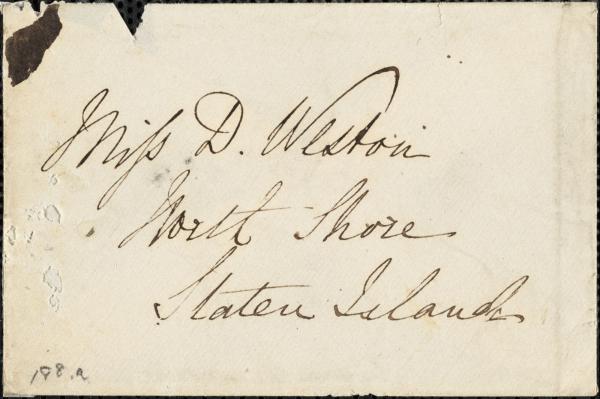 Miss D. Weston
North Shore
Staten Island
198.a